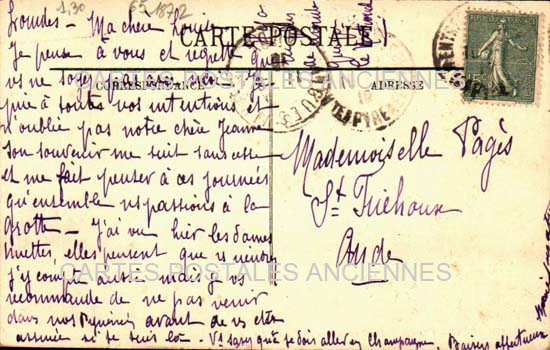 1,30
65 18702
CARTE POSTALE
CORRESPONDANCE
ADRESSE
Lourdes - Ma chère Louise
Je pense à vous et regrette que
vs ne soyez pas près. Je
prie à toutes vos intentions et
n'oublie pas notre chère Jeanne
Son souvenir me suit sans cesse
et me fait penser à ces journées
qu'ensemble ns passions à la
grotte - J'ai vu hier les dames
muettes, elles pensent que vs viendrez
j'y compte aussi mais je vs
recommande de ne pas venir
dans nos Pyrénées avant de vs être
assurée si je suis là - Vs savez que je dois aller en Champagne. Baisers affectueux
Mademoiselle Pagès
St
Aude
CARTES POSTALES ANCIENNES
CARTES POSTALES ANCIENNES